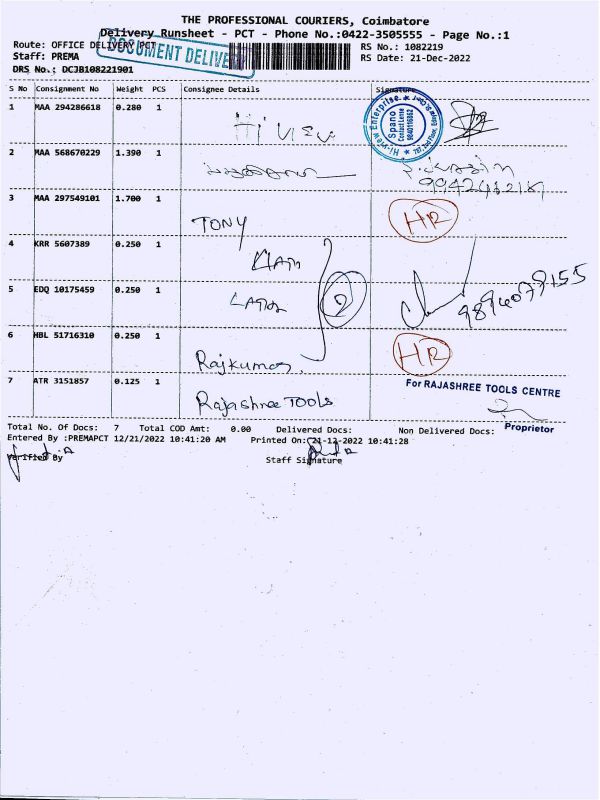 THE PROFESSIONAL COURIERS, Coimbatore
Delivery Runsheet - PCT - Phone No.:0422-3505555 - Page No.:1
Route: OFFICE DELIVERY PCT
RS No.: 1082219
Staff: PREMA
RS Date: 21-Dec-2022
DRS No.: DCJB108221901
DOCUMENT DELIVE
S No Consignment No Weight PCS Consignee Details Signature
1 MAA 294286618 0.280 1
Hi view
Hi-view Enterprise
Spano
2 MAA 568670229 1.390 1
3 MAA 297549101 1.700 1
TONY
HR
4 KRR 5607389 0.250 1
5 EDQ 10175459 0.250 1
6 HBL 51716310 0.250 1
Rajkumar
HR
7 ATR 3151857 0.125 1
Rajashree TOOLS
For RAJASHREE TOOLS CENTRE
Proprietor
Total No. Of Docs: 7 Total COD Amt: 0.00 Delivered Docs: Non Delivered Docs:
Entered By :PREMAPCT 12/21/2022 10:41:20 AM Printed On:21-12-2022 10:41:28
Verified By
Staff Signature